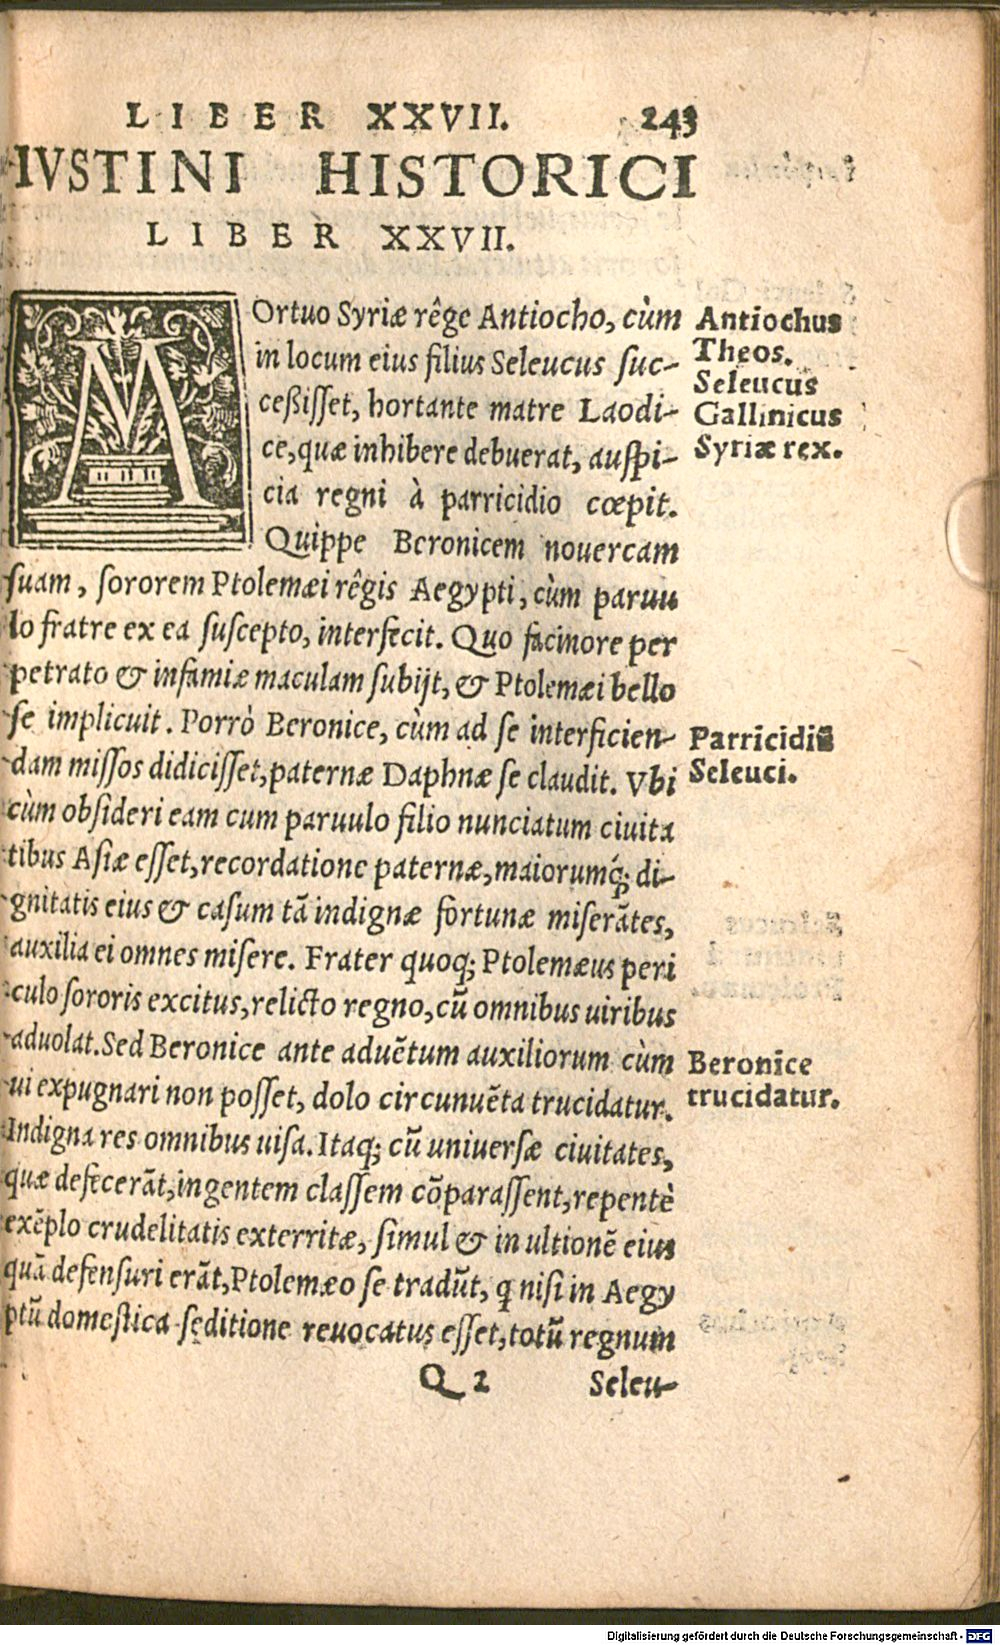 LIBER XXVII. 243
IVSTINI HISTORICI
LIBER XXVII.
MOrtuo Syriæ rêge Antiocho, cùm
in locum eius filius Seleucus suc-
ceßisset, hortante matre Laodi-
ce, quæ inhibere debuerat, auspi-
cia regni à parricidio cœpit.
Quippe Beronicem nouercam
suam, sororem Ptolemæi rêgis Aegypti, cùm paruu
lo fratre ex ea suscepto, interfecit. Quo facinore per
petrato & infamiæ maculam subijt, & Ptolemæi bello
se implicuit. Porrò Beronice, cùm ad se interficien-
dam missos didicisset, paternæ Daphnæ se claudit. Vbi
cùm obsideri eam cum paruulo filio nunciatum ciuita
tibus Asiæ esset, recordatione paternæ, maiorumq́; di-
gnitatis eius & casum tā indignæ fortunæ miserātes,
auxilia ei omnes misere. Frater quoq; Ptolemæus peri
culo sororis excitus, relicto regno, cū omnibus uiribus
aduolat. Sed Beronice ante aduētum auxiliorum cùm
ui expugnari non posset, dolo circunuēta trucidatur.
Indigna res omnibus uisa. Itaq; cū uniuersæ ciuitates,
quæ defecerāt, ingentem classem cōparassent, repentè
exēplo crudelitatis exterritæ, simul & in ultionē eius
quā defensuri erāt, Ptolemæo se tradūt, q nisi in Aegy
ptū domestica seditione reuocatus esset, totū regnum
Q 2 Seleu-
Antiochus
Theos.
Seleucus
Gallinicus
Syriæ rex.
Parricidiū
Seleuci.
Beronice
trucidatur.
Digitalisierung gefördert durch die Deutsche Forschungsgemeinschaft - DFG